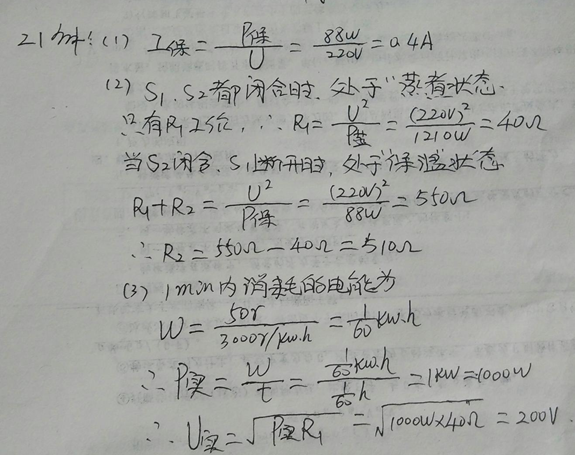 21解:(1) I保 = P保/U = 88W/220V = 0.4A
(2) S₁、S₂都闭合时,处于"蒸煮"状态.
只有R₁工作,∴R₁ = U²/P蒸 = (220V)²/1210W = 40Ω
当S₂闭合、S₁断开时,处于"保温"状态
R₁+R₂ = U²/P保 = (220V)²/88W = 550Ω
∴R₂ = 550Ω - 40Ω = 510Ω
(3) 1min内消耗的电能为
W = 50r/3000r/kw.h = 1/60 kw.h
∴P实 = W/t = 1/60 kw.h / 1/60 h = 1kw = 1000W
∴U实 = √P实R₁ = √1000W×40Ω = 200V.